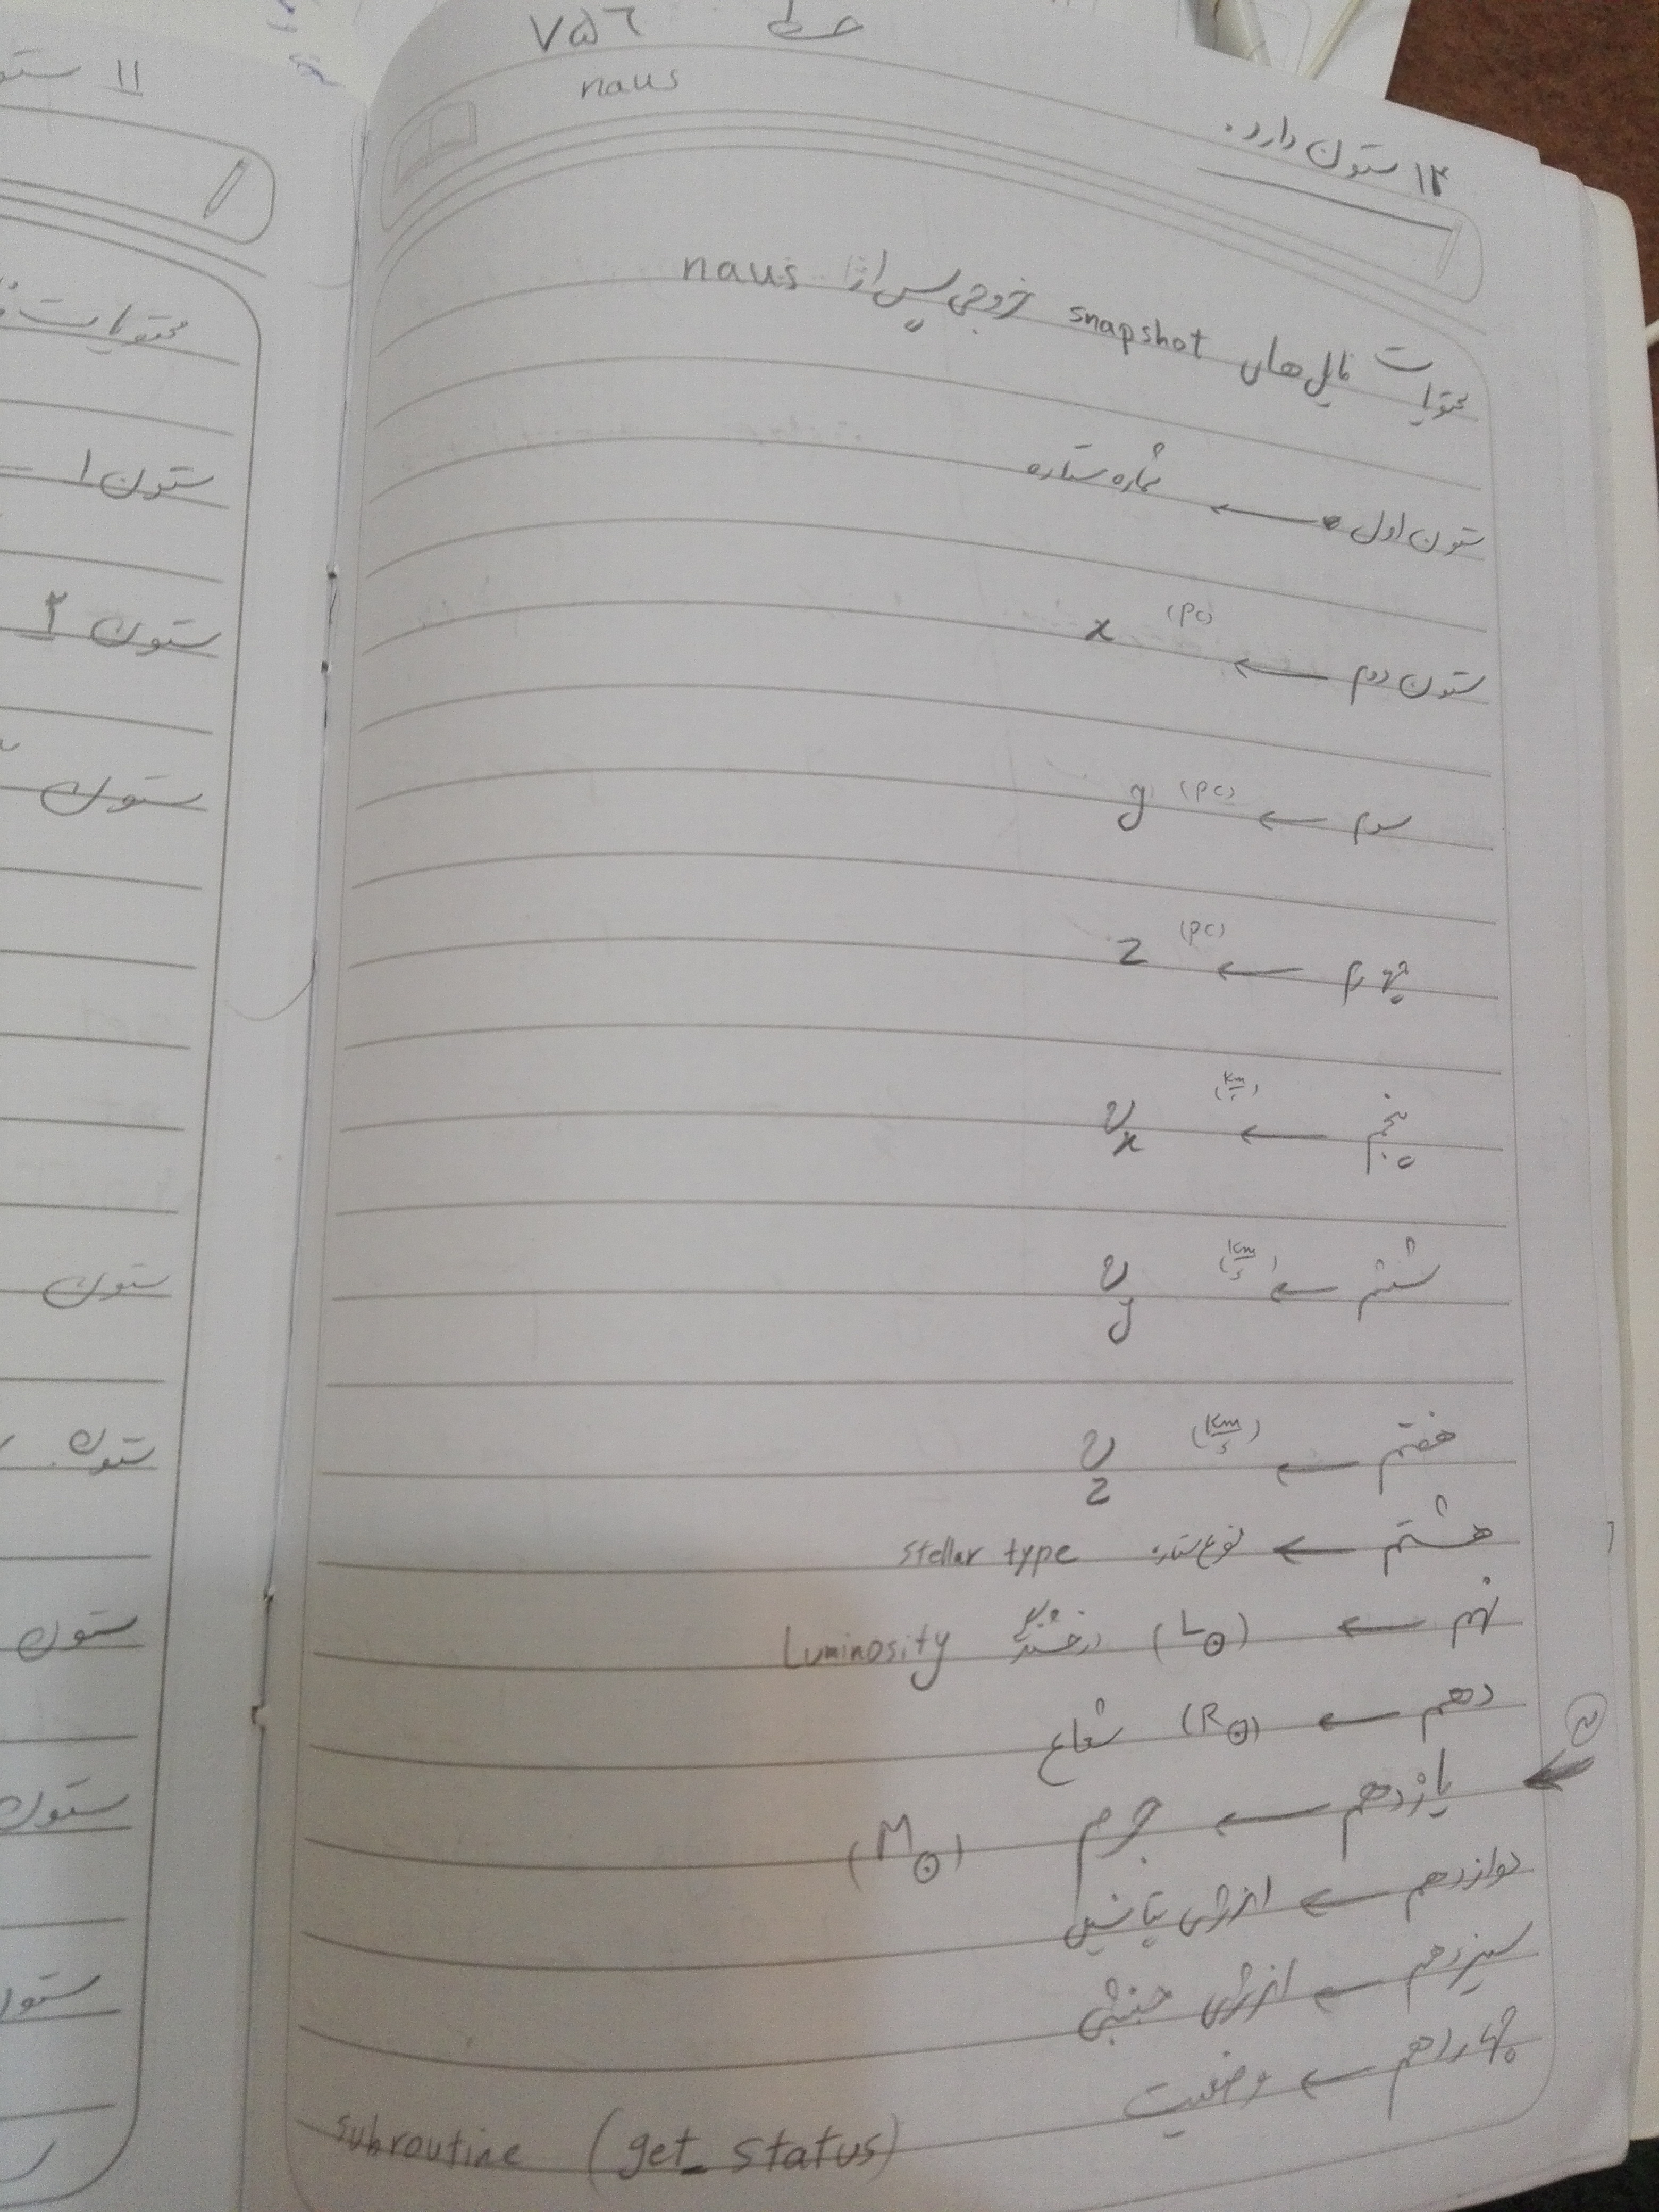 خط ۷۵۶
naus
۱۴ ستون دارد.
محتویات فایل های snapshot خروجی پس از naus
ستون اول ← شماره ستاره
ستون دوم ← (pc) x
سوم ← (pc) y
چهارم ← (pc) z
پنجم ← (km/s) v_x
ششم ← (km/s) v_y
هفتم ← (km/s) v_z
هشتم ← نوع ستاره stellar type
نهم ← (L⊙) درخشندگی Luminosity
دهم ← (R⊙) شعاع
یازدهم ← جرم (M⊙)
دوازدهم ← انرژی پتانسیل
سیزدهم ← انرژی جنبشی
چهاردهم ← وضعیت
subroutine (get_status)
۱۱ ستو
محتویات
ستون ۱
ستون ۲
ستون
ستون
ستون
ستون
ستون
ستو